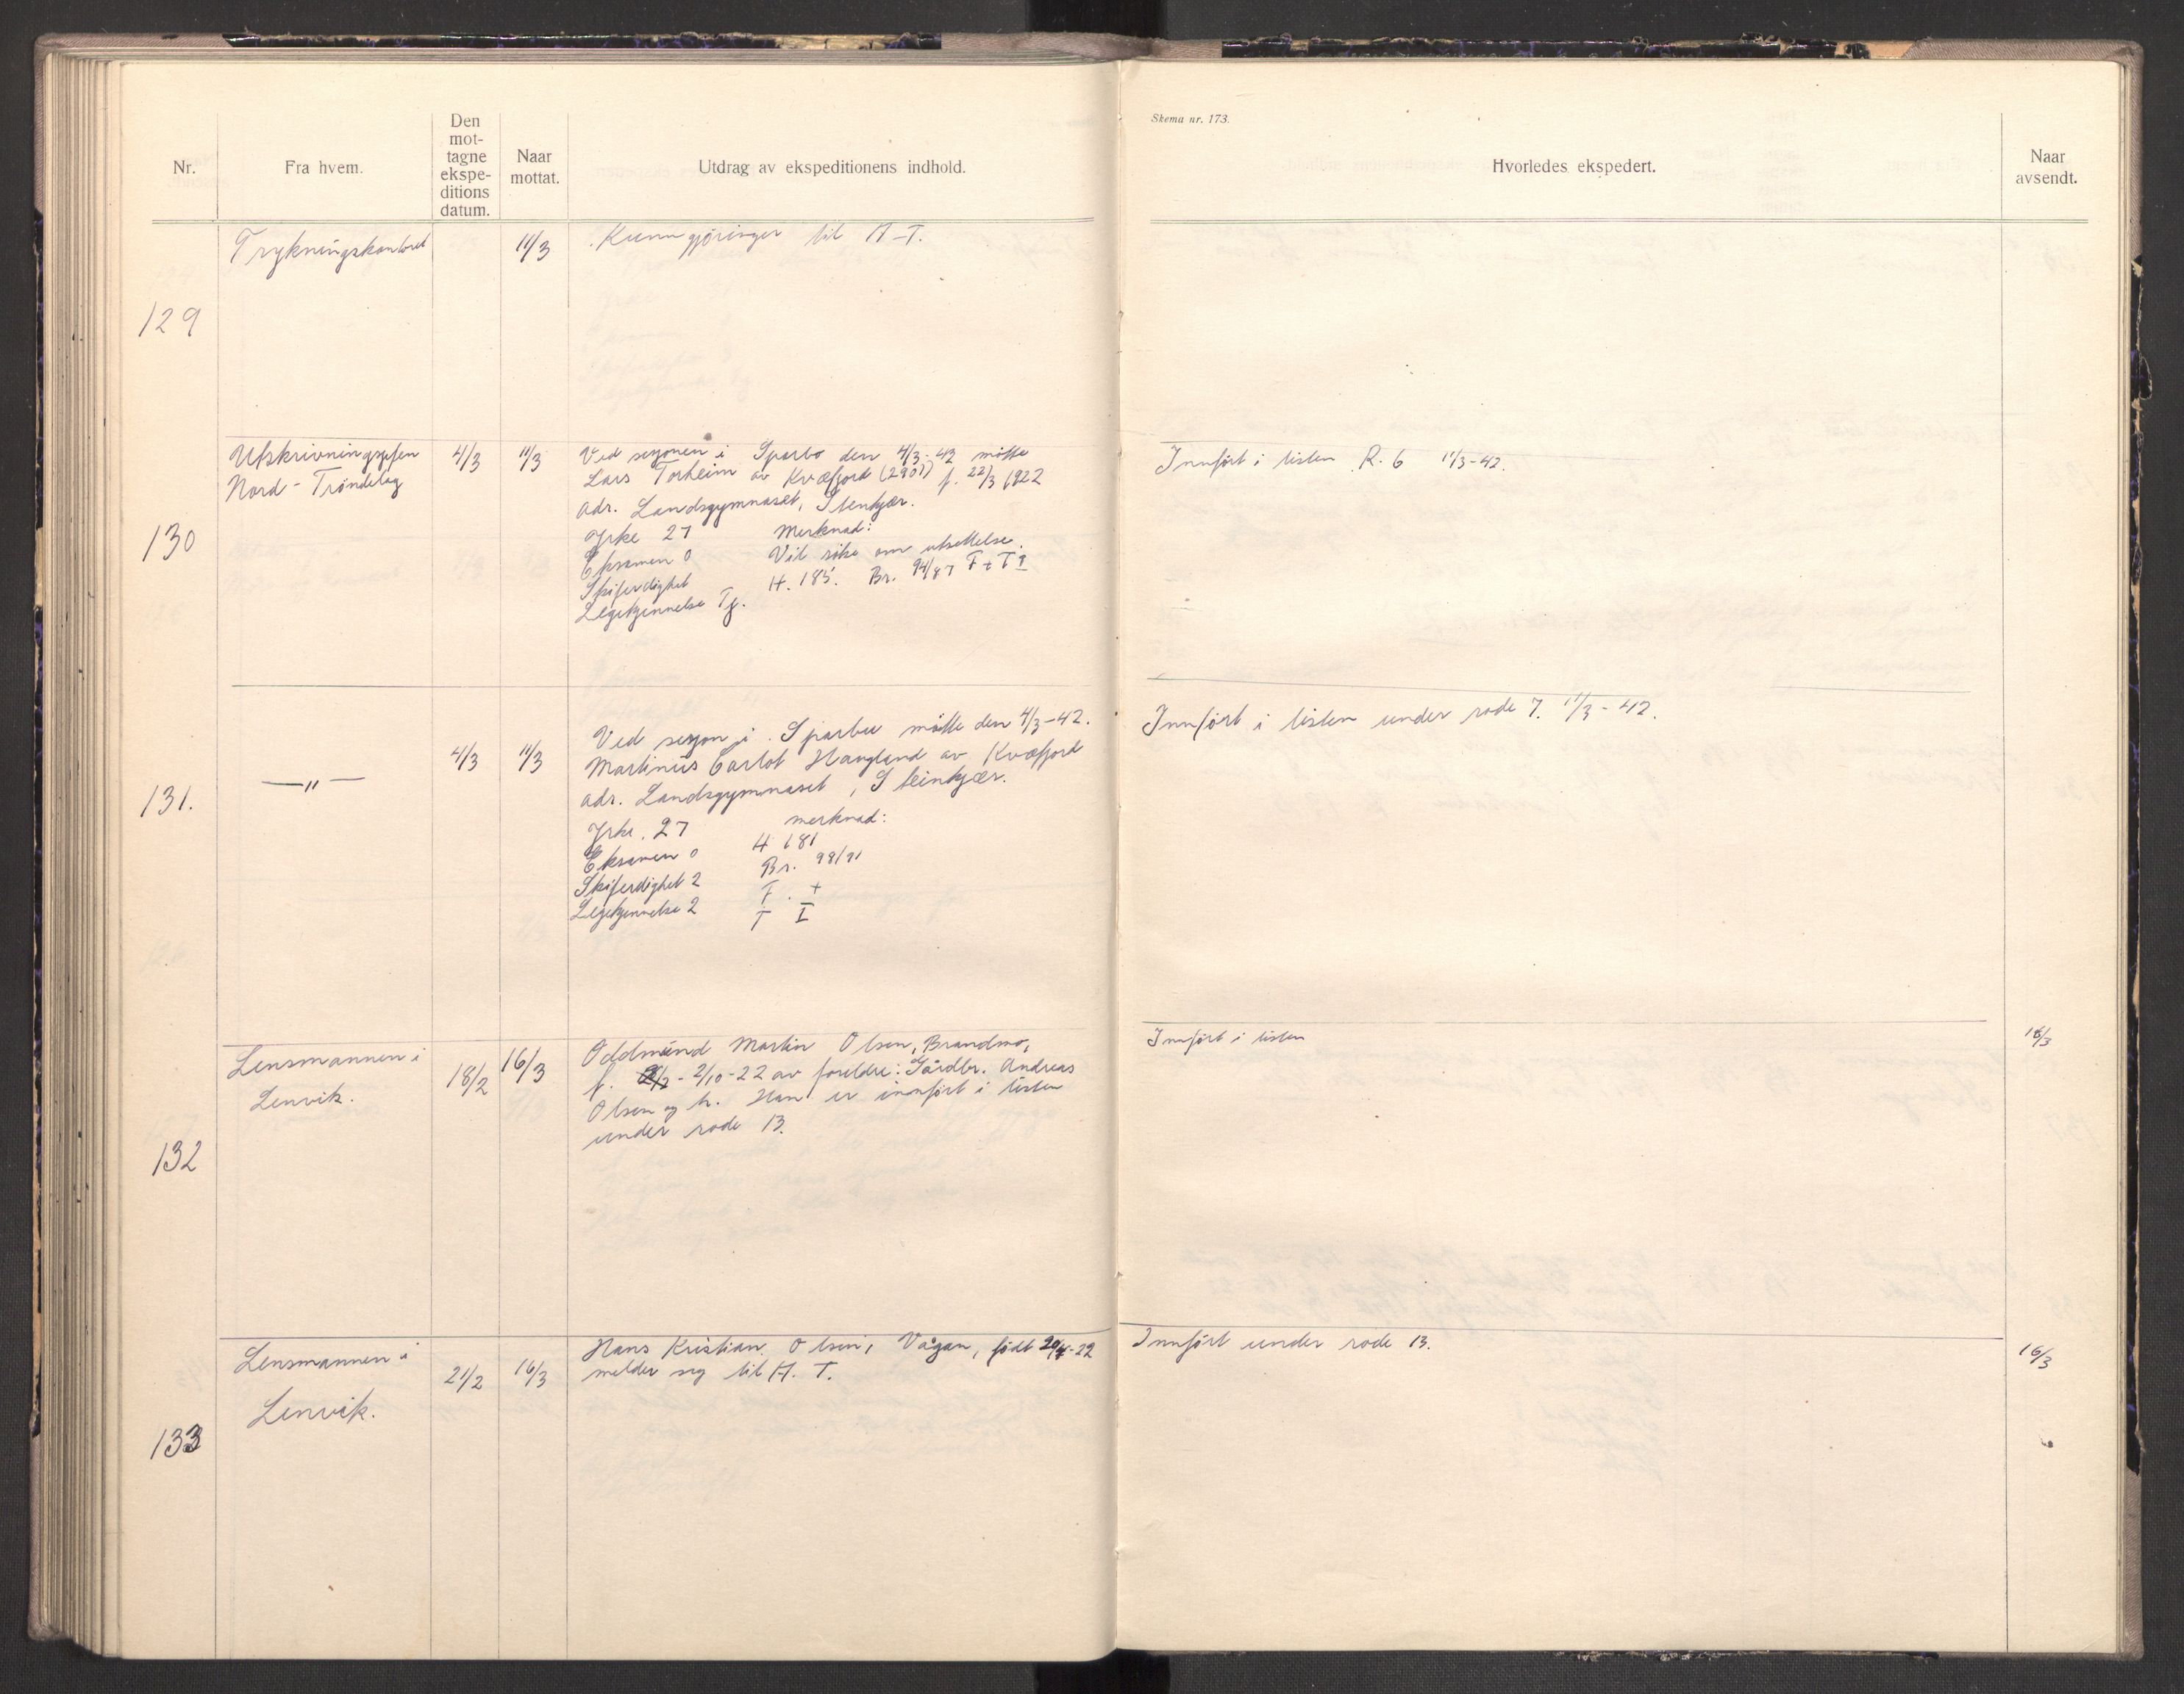 Nr.
Fra hvem.
Den
mot-
tagne
ekspe-
ditions
datum.
Naar
mottat.
Utdrag av ekspeditionens indhold.
Skema nr. 173.
Hvorledes ekspedert.
Naar
avsendt.
129
Trykningskontoret
11/3
Kunngjöringer til A-T.
130
Utskrivningssjefen
Nord-Tröndelag
4/3
11/3
Ved sesjonen i Sparbo den 4/3-42 mötte
Lars Torheim av Kvæfjord (2901) f. 22/3 1922
adr. Landsgymnaset, Stenkjær.
Yrke 27 Merknad:
Eksamen 0 Vil söke om utsettelse.
Skiferdighet H. 185. Br. 94/87 F + T
Legekjennelse Tj.
Innfört i listen R. 6 11/3-42.
131.
—"—
4/3
11/3
Ved sesjon i Sparbu mötte den 4/3-42.
Martinus Carlot Haugland av Kvæfjord
adr. Landsgymnaset, Steinkjær.
Yrke. 27 merknad:
Eksamen 0 H 181
Skiferdighet 2 Br. 98/91
Legekjennelse 2 F. +
T I
Innfört i listen under rode 7. 11/3-42.
132
Lensmannen i
Lenvik.
18/2
16/3
Oddmund Martin Olsen, Brandmo,
f. 2/10-22 av foreldre: Gårdbr. Andreas
Olsen og h. Han er innfört i listen
under rode 13.
Innfört i listen
16/3
133
Lensmannen i
Lenvik.
21/2
16/3
Hans Kristian Olsen, Vågan, födt 20/4-22
melder seg til A. T.
Innfört under rode 13.
16/3